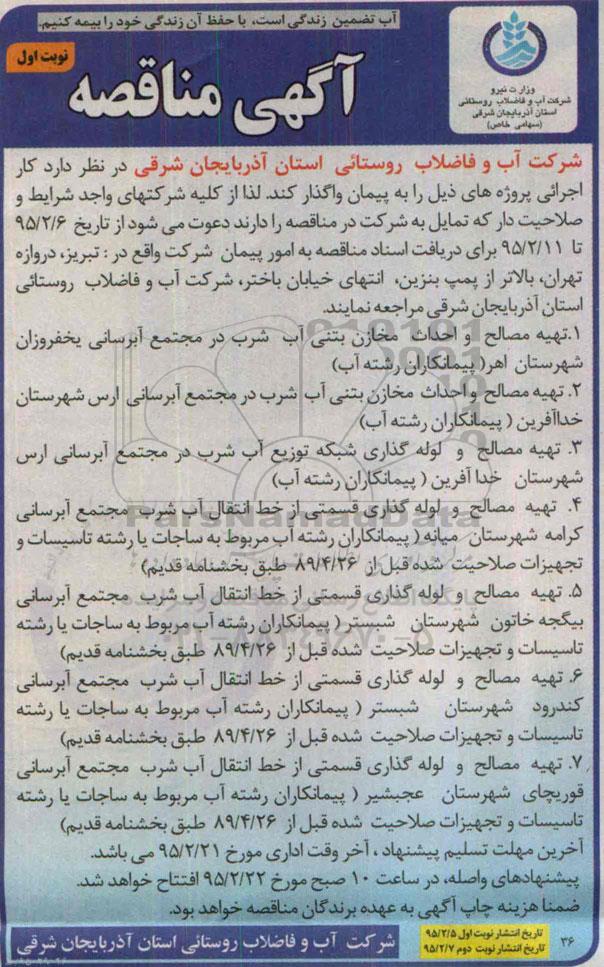 آب تضمین زندگی است، با حفظ آن زندگی خود را بیمه کنیم.
وزارت نیرو
شرکت آب و فاضلاب روستائی
استان آذربایجان شرقی
(سهامی خاص)
نوبت اول
آگهی مناقصه
شرکت آب و فاضلاب روستائی استان آذربایجان شرقی در نظر دارد کار
اجرائی پروژه های ذیل را به پیمان واگذار کند. لذا از کلیه شرکتهای واجد شرایط و
صلاحیت دار که تمایل به شرکت در مناقصه را دارند دعوت می شود از تاریخ ۹۵/۲/۶
تا ۹۵/۲/۱۱ برای دریافت اسناد مناقصه به امور پیمان شرکت واقع در : تبریز، دروازه
تهران، بالاتر از پمپ بنزین، انتهای خیابان باختر، شرکت آب و فاضلاب روستائی
استان آذربایجان شرقی مراجعه نمایند.
۱.تهیه مصالح و احداث مخازن بتنی آب شرب در مجتمع آبرسانی یخفروزان
شهرستان اهر( پیمانکاران رشته آب)
۲. تهیه مصالح و احداث مخازن بتنی آب شرب در مجتمع آبرسانی ارس شهرستان
خداآفرین ( پیمانکاران رشته آب)
۳. تهیه مصالح و لوله گذاری شبکه توزیع آب شرب در مجتمع آبرسانی ارس
شهرستان خدا آفرین ( پیمانکاران رشته آب)
۴. تهیه مصالح و لوله گذاری قسمتی از خط انتقال آب شرب مجتمع آبرسانی
کرامه شهرستان میانه ( پیمانکاران رشته آب مربوط به ساجات یا رشته تاسیسات و
تجهیزات صلاحیت شده قبل از ۸۹/۴/۲۶ طبق بخشنامه قدیم)
۵. تهیه مصالح و لوله گذاری قسمتی از خط انتقال آب شرب مجتمع آبرسانی
بیگجه خاتون شهرستان شبستر ( پیمانکاران رشته آب مربوط به ساجات یا رشته
تاسیسات و تجهیزات صلاحیت شده قبل از ۸۹/۴/۲۶ طبق بخشنامه قدیم)
۶. تهیه مصالح و لوله گذاری قسمتی از خط انتقال آب شرب مجتمع آبرسانی
کندرود شهرستان شبستر ( پیمانکاران رشته آب مربوط به ساجات یا رشته
تاسیسات و تجهیزات صلاحیت شده قبل از ۸۹/۴/۲۶ طبق بخشنامه قدیم)
۷. تهیه مصالح و لوله گذاری قسمتی از خط انتقال آب شرب مجتمع آبرسانی
قوریچای شهرستان عجبشیر ( پیمانکاران رشته آب مربوط به ساجات یا رشته
تاسیسات و تجهیزات صلاحیت شده قبل از ۸۹/۴/۲۶ طبق بخشنامه قدیم)
آخرین مهلت تسلیم پیشنهاد ، آخر وقت اداری مورخ ۹۵/۲/۲۱ می باشد.
پیشنهادهای واصله، در ساعت ۱۰ صبح مورخ ۹۵/۲/۲۲ افتتاح خواهد شد.
ضمنا هزینه چاپ آگهی به عهده برندگان مناقصه خواهد بود.
۳۶
تاریخ انتشار نوبت اول ۹۵/۲/۵
تاریخ انتشار نوبت دوم ۹۵/۲/۷
شرکت آب و فاضلاب روستائی استان آذربایجان شرقی
ParsNamadData